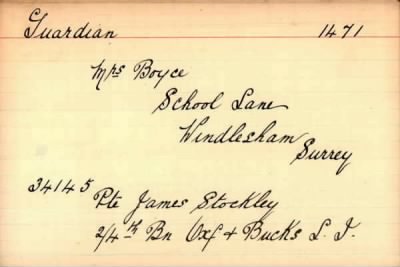 Guardian 1471
Mrs Boyce
School Lane
Windlesham
Surrey
34145
Pte James Stockley
2/4th Bn Oxf & Bucks L. I.